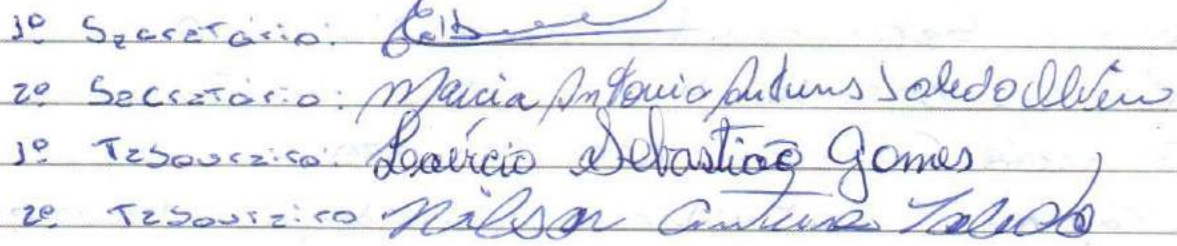 1º Secretário:
2º Secretário: Marcia Antonia Antunes Toledo
1º Tesoureiro: Laércio Sebastião Gomes
2º Tesoureiro Nilson Antunes Toledo